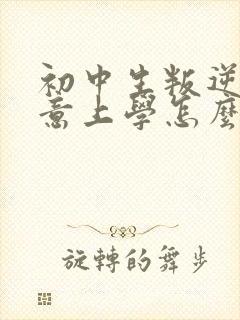 初中生叛逆
意上學怎麼
旋轉的舞步